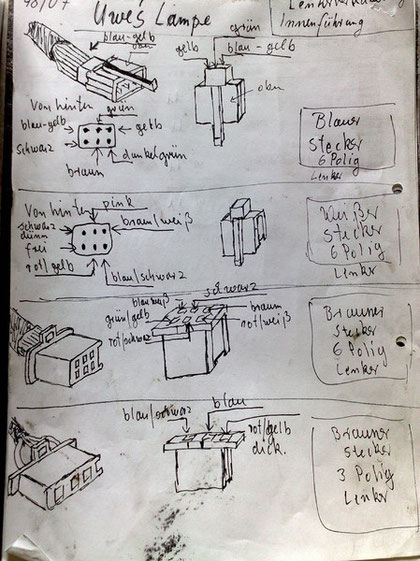 48/07
Uwe's Lampe
Innenführung
blau-gelb
oben
gelb
grün
blau-gelb
oben
Von hinten
grün
blau-gelb
gelb
schwarz
dunkelgrün
braun
Blauer
Stecker
6 Polig
Lenker
Von hinten
pink
schwarz
dünn
braun/weiß
frei
rot/gelb
blau/schwarz
Weißer
Stecker
6 Polig
Lenker
blau/weiß
schwarz
grün/gelb
braun
rot/schwarz
rot/weiß
Brauner
Stecker
6 Polig
Lenker
blau/schwarz
blau
rot/gelb
dick.
Brauner
Stecker
3 Polig
Lenker